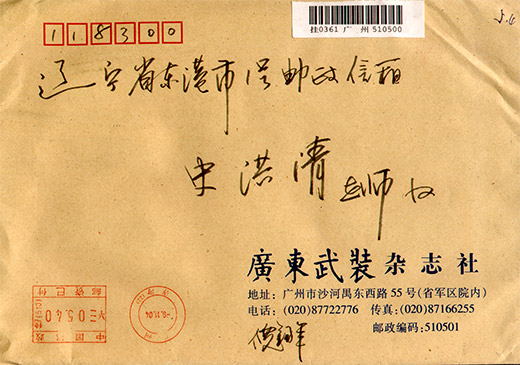 挂0361 广 州 510500
5.4
118300
辽宁省东港市 邮政信箱
史洪清 老师 收
廣東武裝杂志社
地址：广州市沙河禺东西路55号(省军区院内)
电话：(020)87722776 传真：(020)87166255
邮政编码：510501
中国邮政
邮资已付
0540